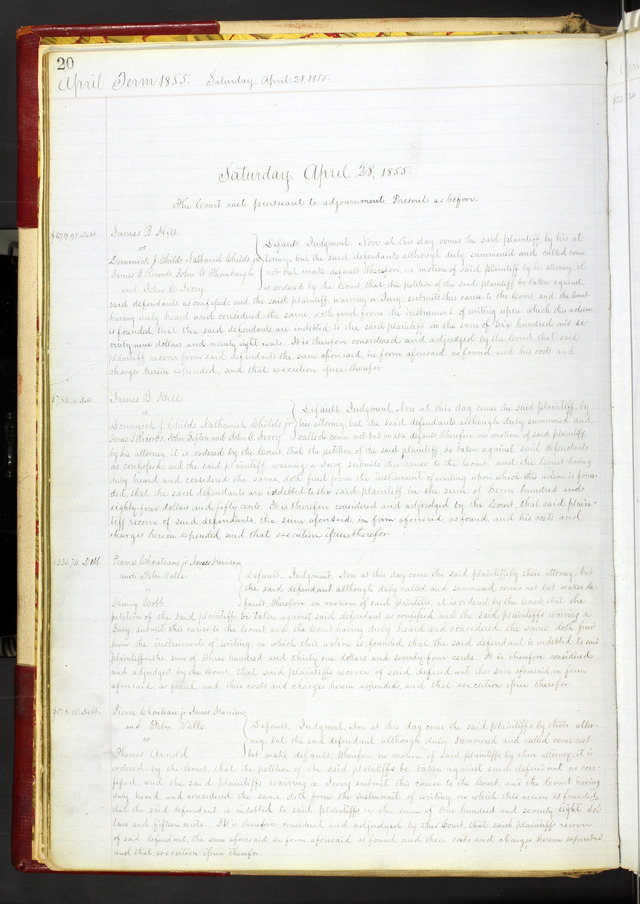 20
April Term 1855. Saturday April 28, 1855.
Saturday, April 28, 1855.
The Court met pursuant to adjournment. Present as before.
$679.98 Debt James B. Hill
vs
Dominick J. Childs Nathaniel Childs jr
James B. John W. Thornburgh
and John C. Ivory
Default. Judgment. Now at this day, comes the said plaintiff by his at-
torney, but the said defendants although duly summoned and called come
not but make default. Therefore, on motion of said plaintiff by his attorney, it
is ordered by the Court, that the petition of the said plaintiff be taken against
said defendants as confessed and the said plaintiff waiving a Jury; submits this cause to the Court, and the Court
having duly heard and considered the same doth find from the instrument of writing upon which this action
is founded, that the said defendants are indebted to the said plaintiff in the sum of Six hundred and se-
venty nine dollars and ninety eight cents. It is therefore considered and adjudged by the Court, that said
plaintiff recover from said defendants the sum aforesaid, in form aforesaid as found, and his costs and
charges herein expended, and that execution issue therefor.
James B. Hill
vs
Dominick J. Childs Nathaniel Childs jr
John Tefton and John C. Ivory
Default. Judgment. Now at this day comes the said plaintiff, by
his attorney, but the said defendants although duly summoned and
called, come not but make default. Therefore on motion of said plaintiff
by his attorney it is ordered by the Court, that the petition of the said plaintiff, be taken against said defendants
as confessed, and the said plaintiff, waiving a Jury submits this cause to the Court, and the Court having
duly heard and considered the same, doth find from the instrument of writing upon which this action is foun-
ded, that the said defendants are indebted to the said plaintiff in the sum of Seven hundred and
eighty four dollars and fifty cents. It is therefore considered and adjudged by the Court, that said plain-
tiff recover of said defendants, the sum aforesaid, in form aforesaid, as found, and his costs and
charges herein expended and that execution issue therefor.
$331.74 Debt Pierre Chouteau jr James Harrison
and Felix Valle
vs
Henry Cobb
Default. Judgment. Now at this day come the said plaintiffs by their attorney, but
the said defendant although duly called and summoned, comes not but makes de-
fault. Therefore on motion of said plaintiffs, it is ordered by the Court that the
petition of the said plaintiffs be taken against said defendant as confessed, and the said plaintiffs waiving a
Jury; submit this cause to the Court, and the Court having duly heard and considered the same doth find
from the instrument of writing, on which this action is founded, that the said defendant is indebted to said
plaintiffs the sum of Three hundred and thirty one dollars and seventy four cents. It is therefore considered
and adjudged by the Court, that said plaintiffs recover of said defendant the sum aforesaid, in form
aforesaid, as found, and their costs and charges herein expended, and that execution issue therefor.
$178.15 Debt Pierre Chouteau jr James Harrison
and Felix Valle
vs
Thomas Arnold
Default. Judgment. Now at this day come the said plaintiffs by their attor-
ney, but the said defendant although duly summoned and called comes not
but makes default. Therefore, on motion of said plaintiffs by their attorney, it is
ordered by the Court, that the petition of the said plaintiffs be taken against said defendant as con-
fessed, and the said plaintiffs waiving a Jury submit this cause to the Court, and the Court having
duly heard and considered the same, doth from the instrument of writing on which this action is founded,
that the said defendant is indebted to said plaintiffs in the sum of One hundred and seventy eight dol-
lars and fifteen cents. It is therefore considered and adjudged by the Court, that said plaintiffs recover
of said defendant, the sum aforesaid in form aforesaid as found and their costs and charges herein expended
and that execution issue therefor.